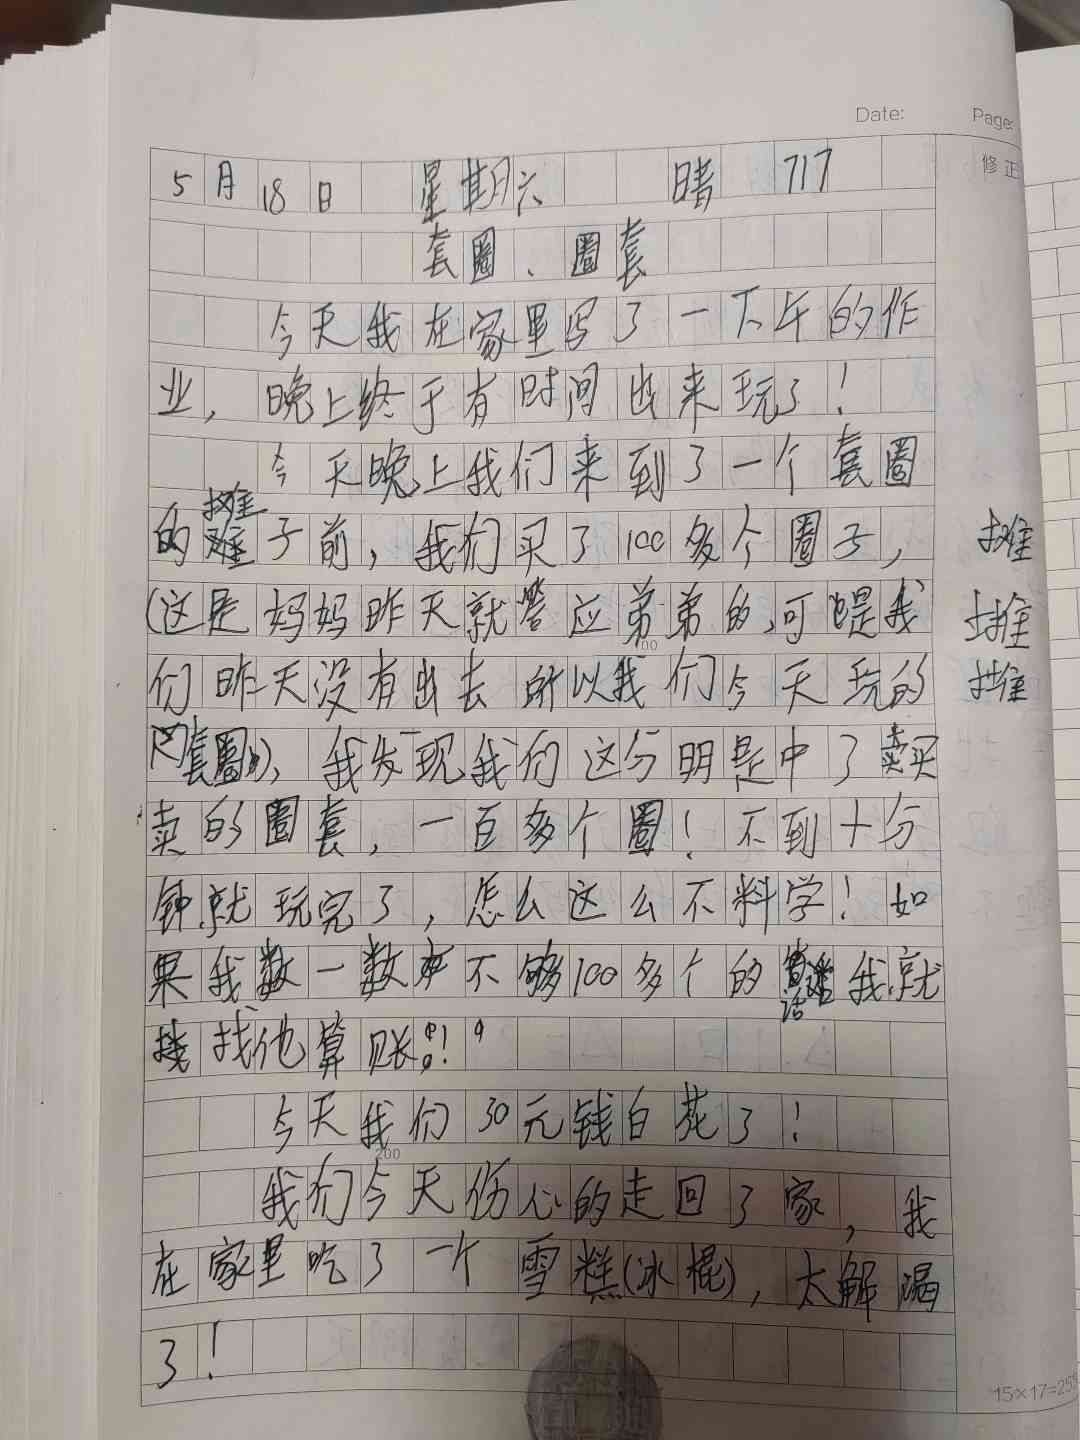 Date:
Page:
修正
5月18日 星期六 晴 717
套圈、圈套
今天我在家里写了一下午的作
业，晚上终于有时间出来玩了！
今天晚上我们来到了一个套圈
的摊子前，我们买了100多个圈子，
摊
摊
摊
（这是妈妈昨天就答应弟弟的，可是我
们昨天没有出去所以我们今天玩的
套圈），我发现我们这分明是中了买
卖的圈套，一百多个圈！不到十分
钟就玩完了，怎么这么不料学！如
果我数一数不够100多个的话我就
找他算账！
今天我们30元钱白花了！
200
我们今天伤心的走回了家，我
在家里吃了一个雪糕（冰棍），太解渴
了！
15×17=255